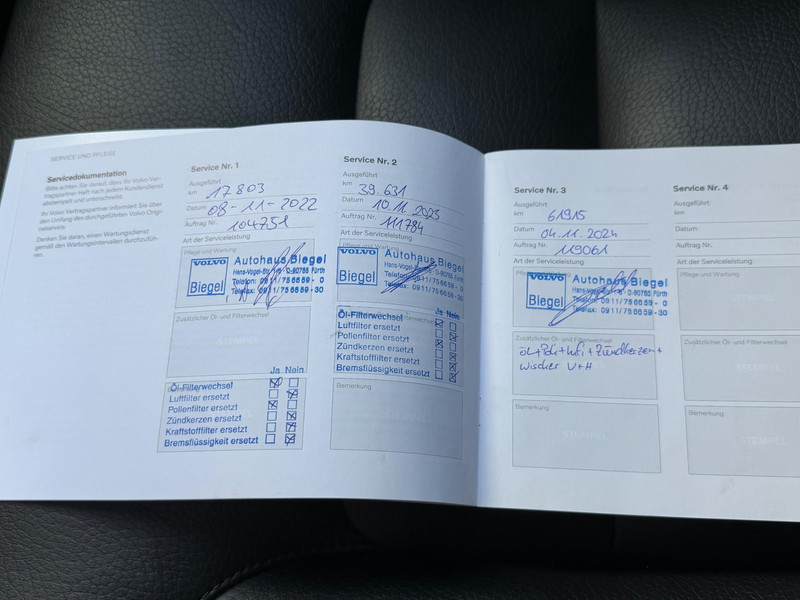 SERVICE UND PFLEGE
Servicedokumentation
Bitte achten Sie darauf, dass Ihr Volvo Ver-
tragspartner Heft nach jedem Kundendienst
abstempelt und unterschreibt.
Ihr Volvo Vertragspartner informiert Sie über
den Umfang des durchgeführten Volvo Origi-
nalservice.
Denken Sie daran, einen Wartungsdienst
gemäß den Wartungsintervallen durchzufüh-
ren.
Service Nr. 1
Ausgeführt
km 17803
Datum 08-11-2022
Auftrag Nr. 104751
Art der Serviceleistung
Pflege und Wartung
VOLVO
Biegel
Autohaus Biegel
Hans-Vogel-Str. D-90765 Fürth
Telefon: 0911/756659-0
Telefax: 0911/756659-30
Zusätzlicher Öl- und Filterwechsel
STEMPEL
Ja Nein
Öl-Filterwechsel
Luftfilter ersetzt
Pollenfilter ersetzt
Zündkerzen ersetzt
Kraftstoffilter ersetzt
Bremsflüssigkeit ersetzt
Service Nr. 2
Ausgeführt
km 39.631
Datum 10.11.2023
Auftrag Nr. 111784
Art der Serviceleistung
Pflege und Wartung
VOLVO
Biegel
Autohaus Biegel
Hans-Vogel-Str. D-90765 Fürth
Telefon: 0911/756659-0
Telefax: 0911/756659-30
Ja Nein
Öl-Filterwechsel
Luftfilter ersetzt
Pollenfilter ersetzt
Zündkerzen ersetzt
Kraftstoffilter ersetzt
Bremsflüssigkeit ersetzt
Bemerkung
Service Nr. 3
Ausgeführt
km 61915
Datum 04.11.2024
Auftrag Nr. 119061
Art der Serviceleistung
Pflege und Wartung
VOLVO
Biegel
Autohaus Biegel
D-90765 Fürth
Telefon: 0911/756659-0
Telefax: 0911/756659-30
Zusätzlicher Öl- und Filterwechsel
Zündkerzen+
Wischer V+H
Bemerkung
STEMPEL
Service Nr. 4
Ausgeführt
km
Datum
Auftrag Nr.
Art der Serviceleistung
Pflege und Wartung
STEMPEL
Zusätzlicher Öl- und Filterwechsel
STEMPEL
Bemerkung
STEMPEL